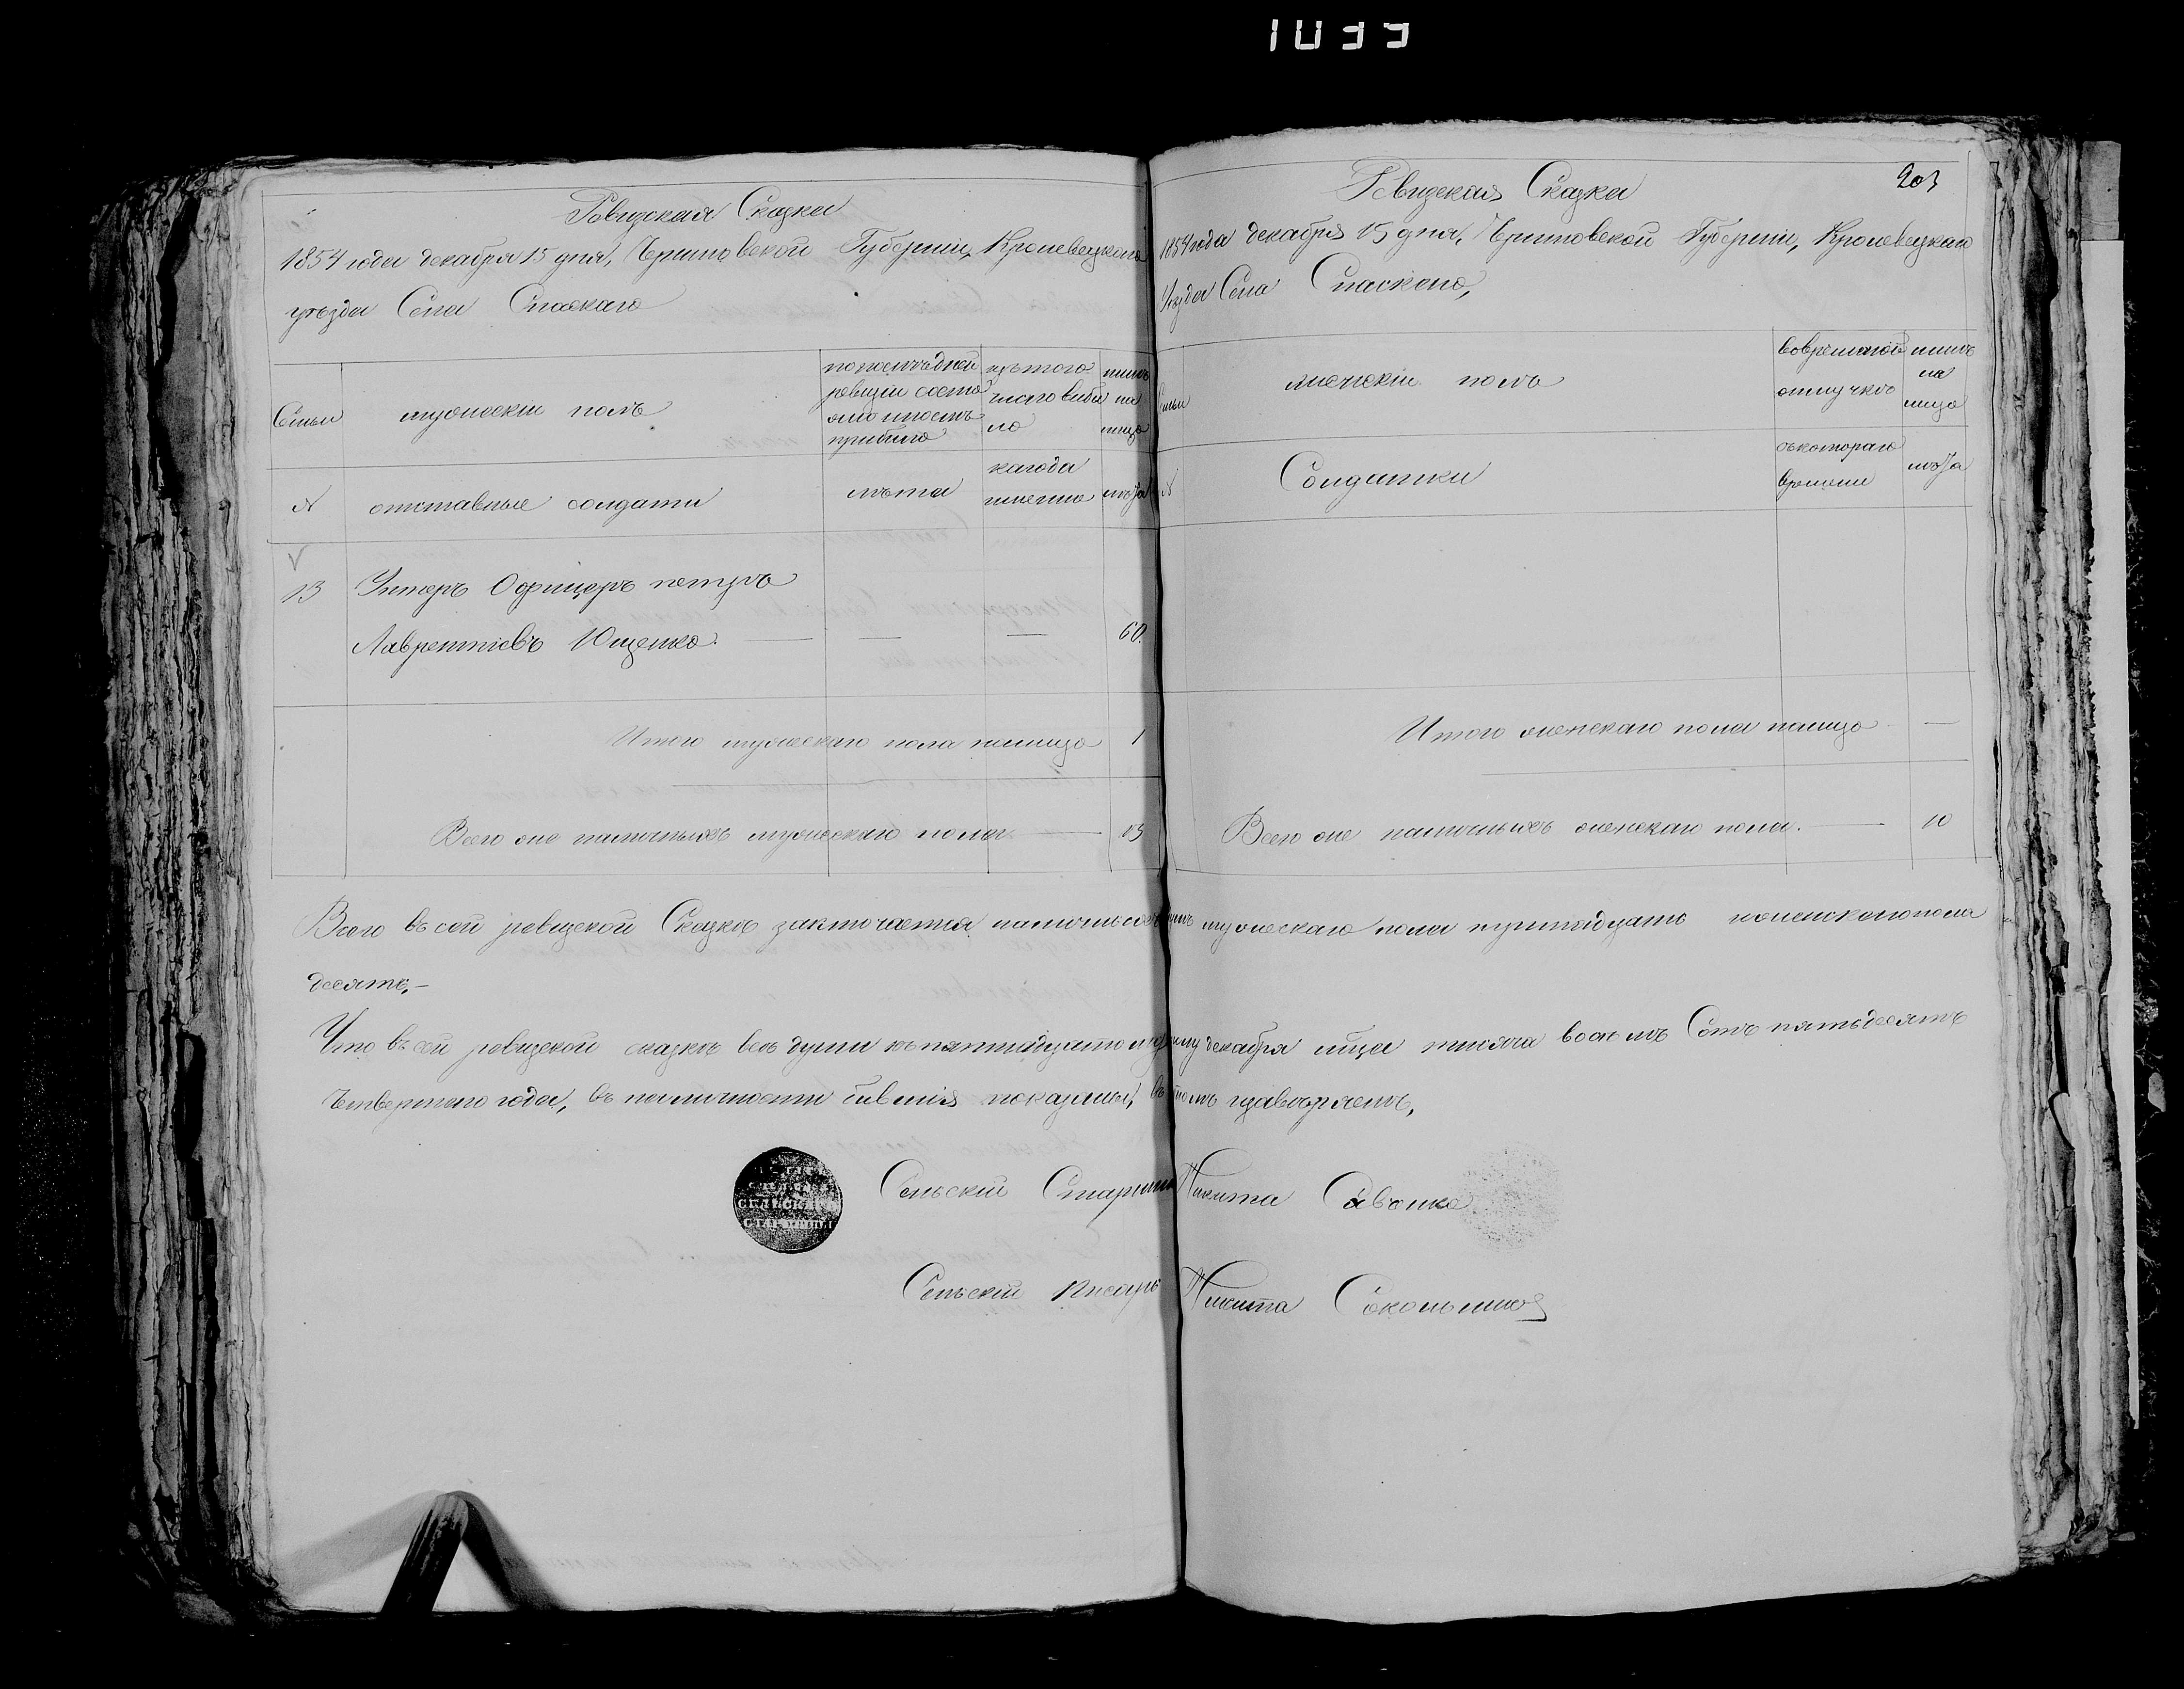 1033
Ревизская Сказка
1854 года декабря 15 дня, Черниговской Губернии, Кролевецкаго
уѣзда Села Спаскаго
Семьи
мужескій полъ
по последней ревизіи состояло и послѣ прибыло
изъ того числа выбыло
нынѣ на лицо
№
отставные солдаты
лѣта
когда именно
лѣта
13
Унтеръ Офицеръ петръ
Лаврентіевъ Ющенко. — — — 60.
Итого мужескаго пола налицо 1
Всего же наличныхъ мужескаго пола — 13
203
Ревизская Сказка
1854 года декабря 15 дня, Черниговской Губерніи, Кролевецкаго
Уезда Села Спаскаго,
Семьи
женскій полъ
во временной отлучкѣ
нынѣ на лицо
№
Солдатки
съ котораго времени
лѣта
Итого женскаго пола налицо —
Всего же наличныхъ женскаго пола. — 10
Всего въ сей ревизской Сказкѣ заключается наличныхъ душъ мужескаго пола тринадцать и женскаго пола
десять,—
Что въ сей ревизской сказкѣ всѣ души къ пятнадцатому декабря мѣца тысяча восемъ Сотъ пятьдесятъ
Четвертого года, въ наличности бывшія показаны, въ томъ
Сельскій Старшина Никита Савонко
СЕЛЬСКАГО
Сельскій Писарь Никита